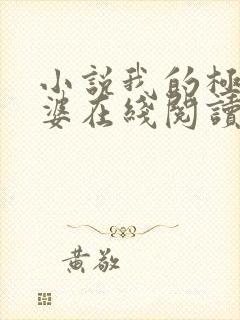 小説我的極
婆在綫閱讀
黃敬